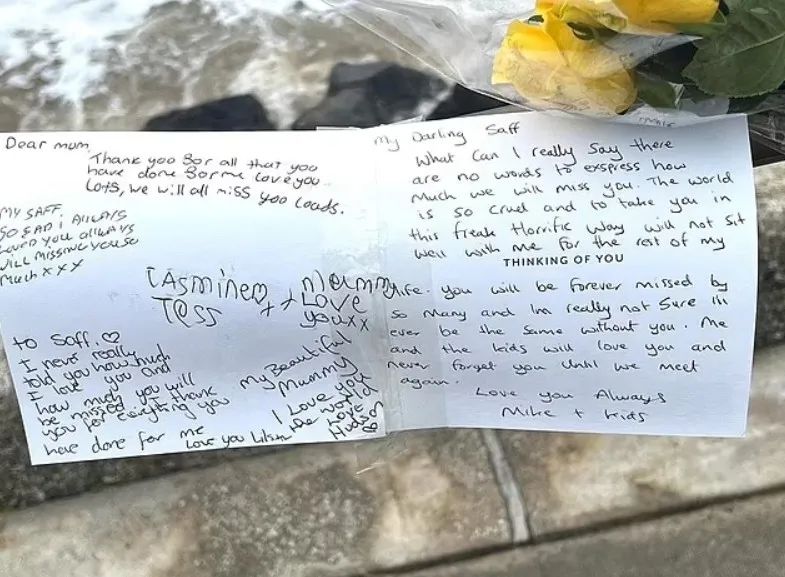 Dear mum,
Thank you for all that you
have done for me love you
Lots, we will all miss you loads.
MY SAFF.
SO SAD I ALWAYS
LOVED YOU ALWAYS
WILL MISSING YOU SO
MUCH x x x
Tess
x x
Mummy
Love
you xx
to Saff. ♡
I never really
told you how much
I love you and
how much you will
be missed. I thank
you for everything you
have done for me
Love you
My Beautiful
Mummy
I Love you
the world
Love
Hudson
My Darling Saff
What Can I really Say there
are no words to exspress how
Much we will miss you. The world
is so cruel and to take you in
this freak Horrific Way will not sit
well with me for the rest of my
THINKING OF YOU
life. you will be forever missed by
so many and Im really not Sure Ill
ever be the same without you. Me
and the kids will love you and
never forget you until we meet
again.
Love you Always
Mike + kids